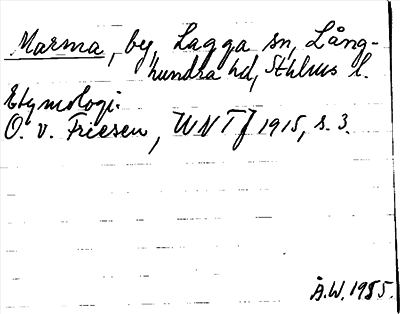 Marma, by, Lagga sn, Lång-
hundra hd, Sthlms l.
Etymologi:
O. v. Friesen, UNT 1915, s. 3.
Å.W. 1955.